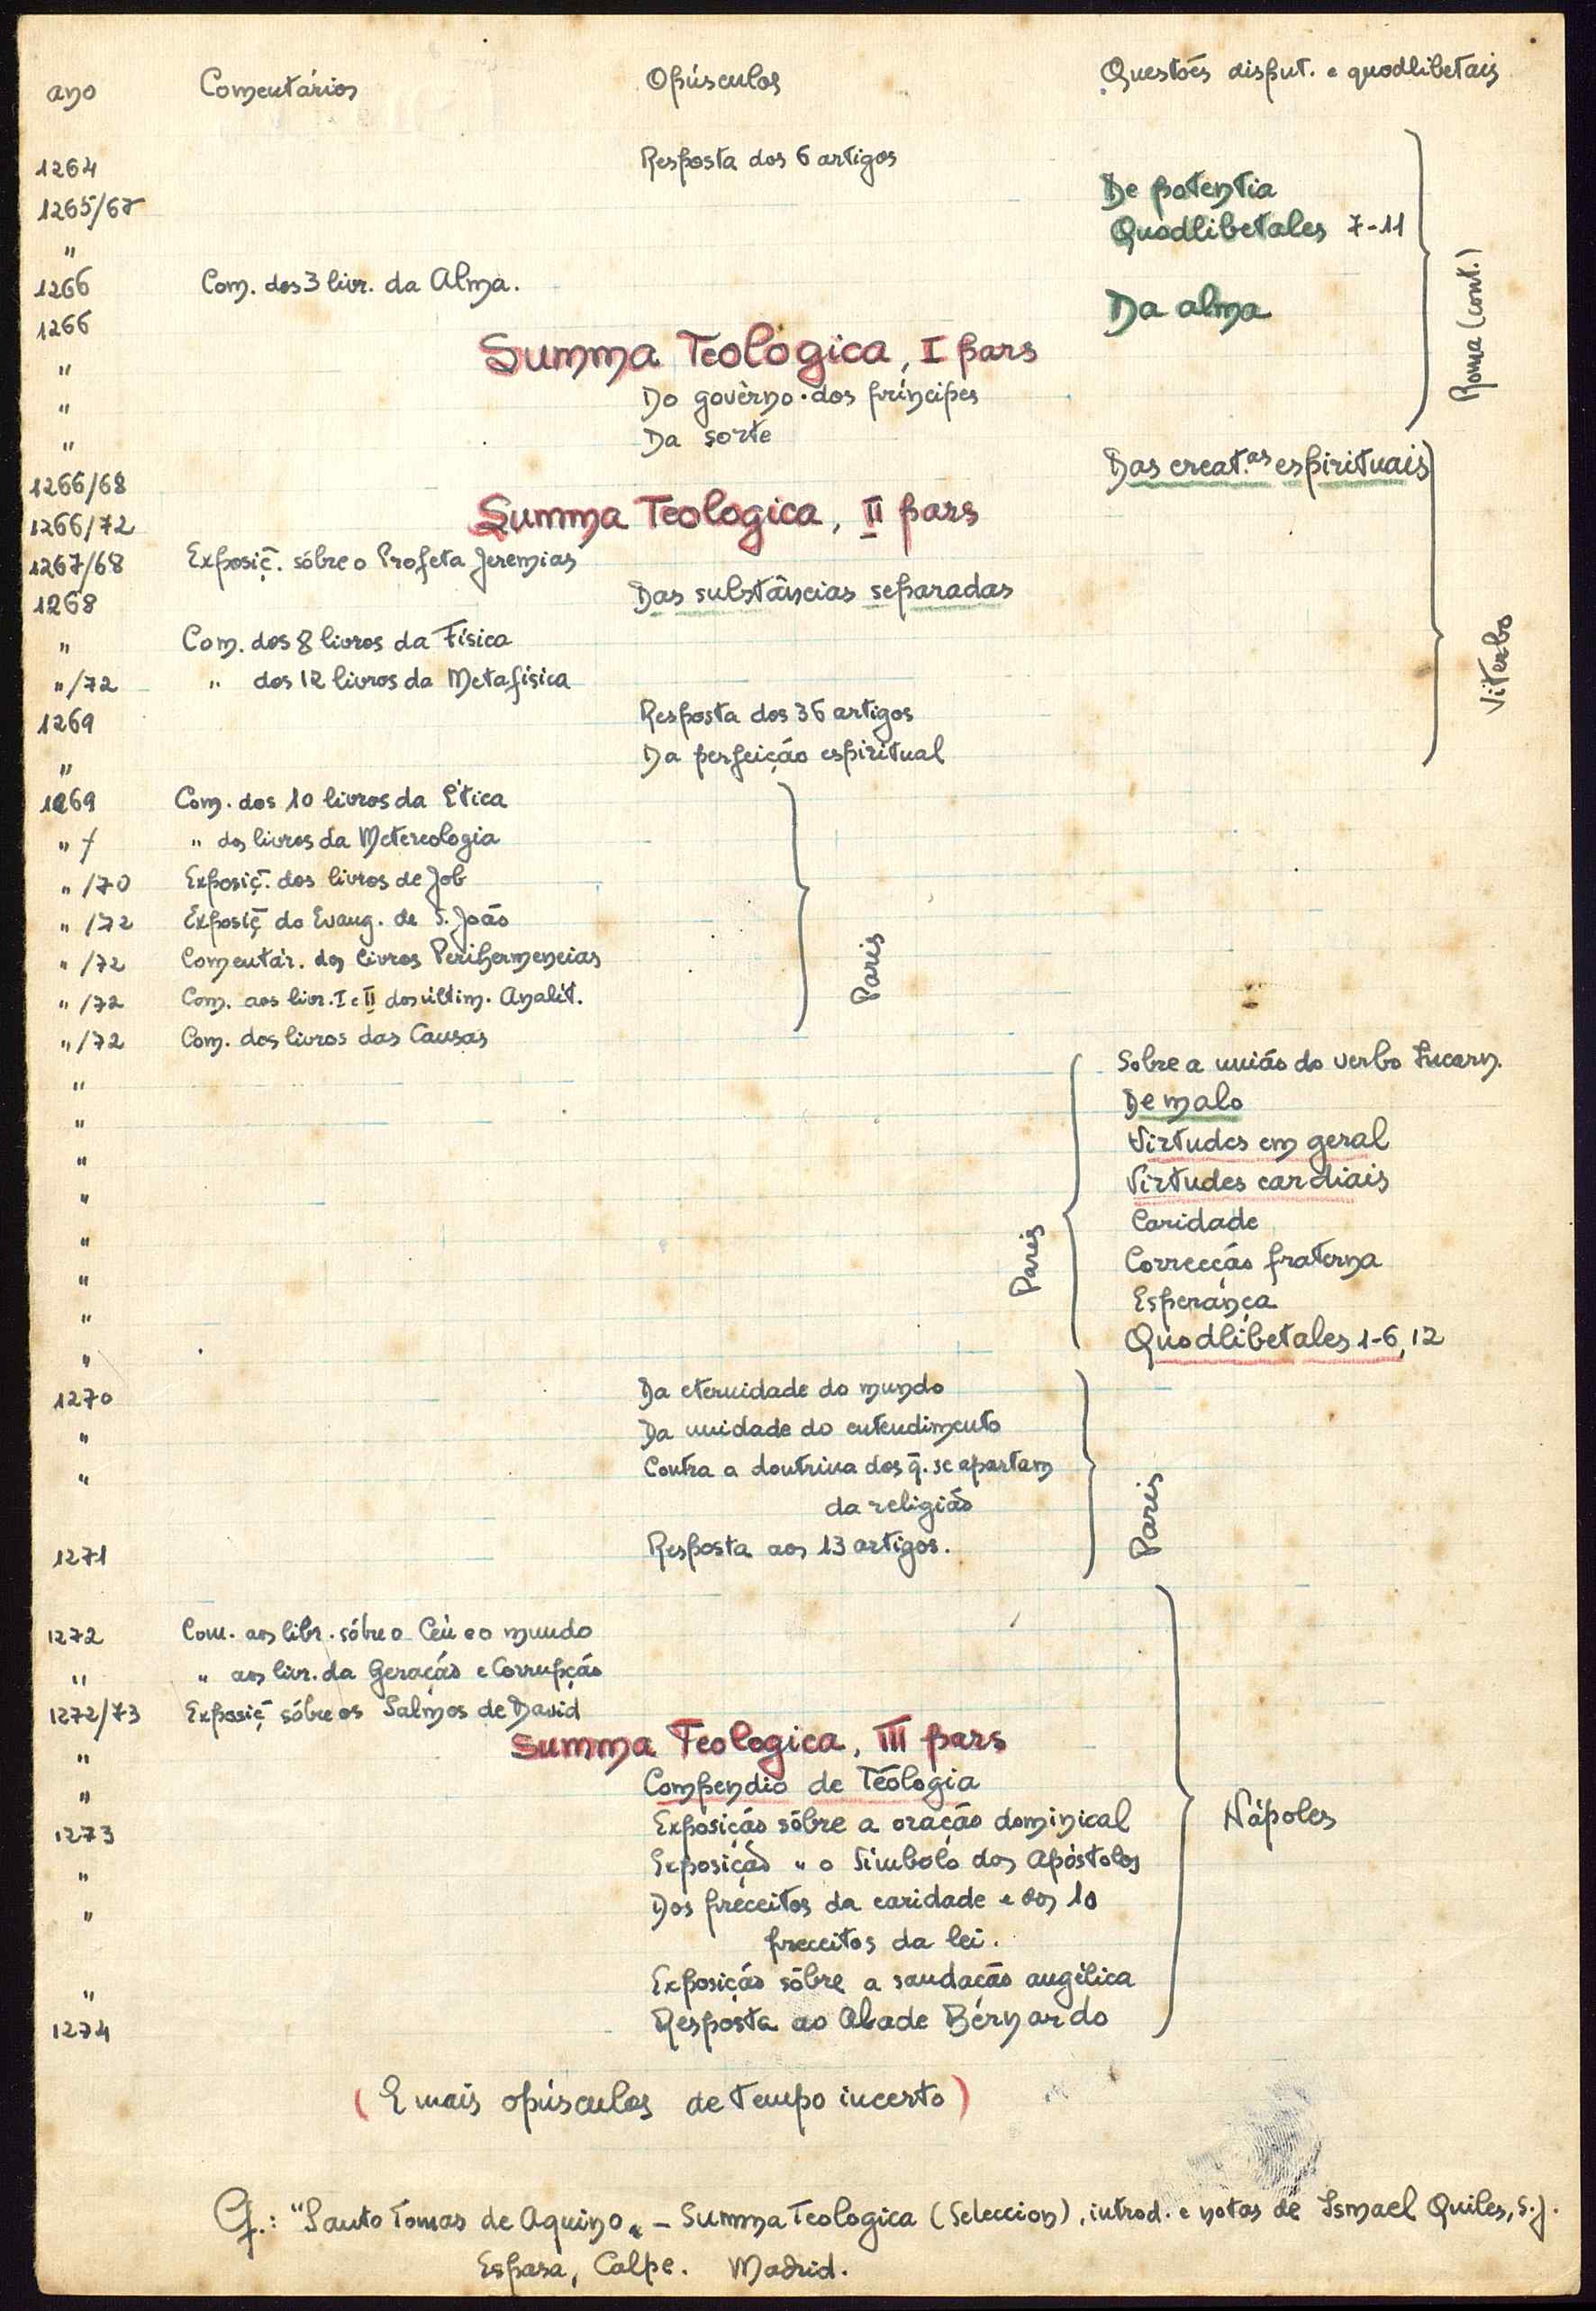 ano Comentários Opúsculos Questões disput. e quodlibetais
1264 Resposta dos 6 artigos
1265/67 De potentia
" Quodlibetales 7-11
1266 Com. dos 3 livr. da Alma.
1266 Da alma
" Summa Teologica, I pars
" Do govêrno dos príncipes
" Da sorte
1266/68 Das creat.as espirituais
Roma (cont.)
1266/72 Summa Teologica, II pars
1267/68 Exposiç. sôbre o Profeta Jeremias
1268 Das substâncias separadas
" Com. dos 8 livros da Física
"/72 " dos 12 livros da Metafísica
1269 Resposta dos 36 artigos
" Da perfeição espiritual
Viterbo
1269 Com. dos 10 livros da Ética
" / " dos livros da Metereologia
" /70 Exposiç. dos livros de Job
" /72 Exposiç do Evang. de S. João
" /72 Comentár. dos livros Perihermeneias
" /72 Com. aos livr. I e II dos últim. Analít.
" /72 Com. dos livros das Causas
Paris
" Sobre a união do verbo Incarn.
" De malo
" Virtudes em geral
" Virtudes cardiais
" Caridade
" Correcção fraterna
" Esperança
" Quodlibetales 1-6, 12
Paris
1270 Da eternidade do mundo
" Da unidade do entendimento
" Contra a doutrina dos q̄. se apartam
da religião
1271 Resposta aos 13 artigos.
Paris
1272 Com. aos libr. sôbre o Céu e o mundo
" " aos livr. da Geração e Corrupção
1272/73 Exposiç sôbre os Salmos de David
" Summa Teologica, III pars
" Compendio de Teologia
1273 Exposição sôbre a oração dominical
" Exposição " o Símbolo dos Apóstolos
" Dos preceitos da caridade e dos 10
preceitos da lei.
" Exposição sôbre a saudação angélica
1274 Resposta ao Abade Bernardo
Nápoles
(E mais opúsculos de tempo incerto)
Cf.: "Santo Tomas de Aquino" – Summa Teologica (Seleccion), introd. e notas de Ismael Quiles, S.J.
Espasa, Calpe. Madrid.